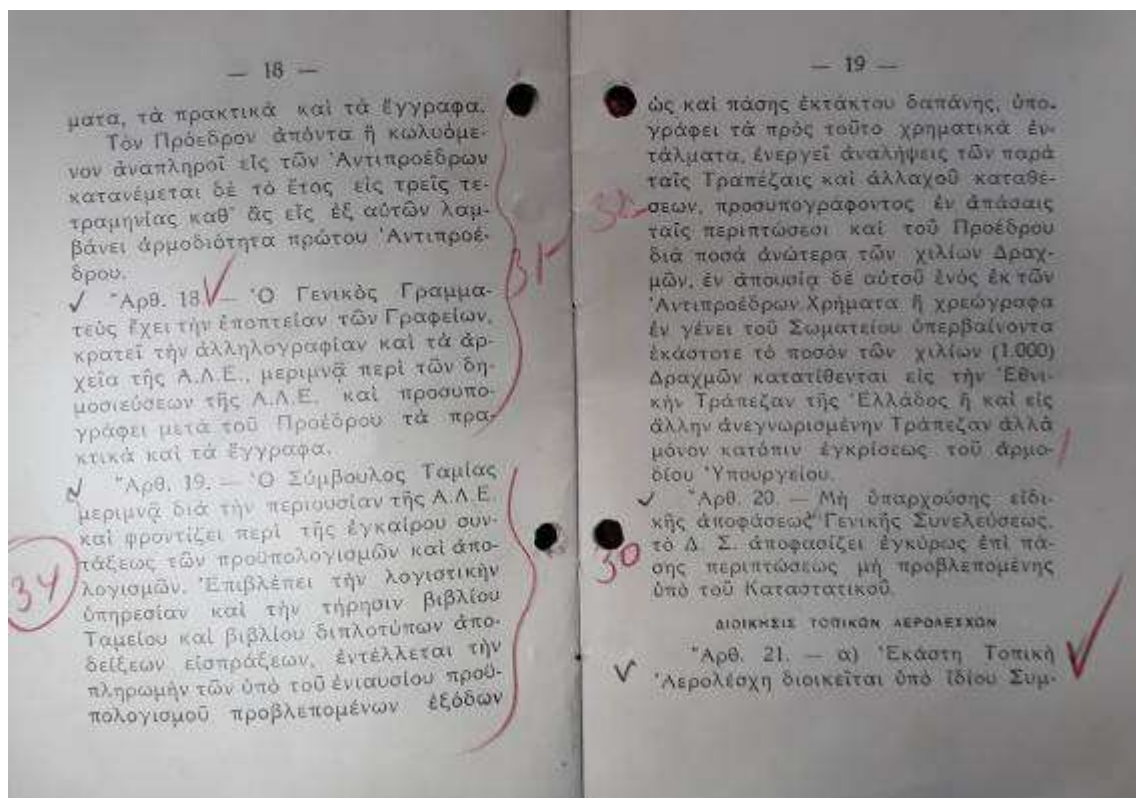 — 18 —
ματα, τὰ πρακτικὰ καὶ τὰ ἔγγραφα.
Τὸν Πρόεδρον ἀπόντα ἢ κωλυόμε-
νον ἀναπληροῖ εἷς τῶν Ἀντιπροέδρων
κατανέμεται δὲ τὸ ἔτος εἰς τρεῖς τε-
τραμηνίας καθ' ἃς εἷς ἐξ αὐτῶν λαμ-
βάνει ἁρμοδιότητα πρώτου Ἀντιπροέ-
δρου.
Ἄρθ. 18. — Ὁ Γενικὸς Γραμμα-
τεὺς ἔχει τὴν ἐποπτείαν τῶν Γραφείων,
κρατεῖ τὴν ἀλληλογραφίαν καὶ τὰ ἀρ-
χεῖα τῆς Α.Λ.Ε., μεριμνᾷ περὶ τῶν δη-
μοσιεύσεων τῆς Α.Λ.Ε. καὶ προσυπο-
γράφει μετὰ τοῦ Προέδρου τὰ πρα-
κτικὰ καὶ τὰ ἔγγραφα.
Ἄρθ. 19. — Ὁ Σύμβουλος Ταμίας
μεριμνᾷ διὰ τὴν περιουσίαν τῆς Α.Λ.Ε.
καὶ φροντίζει περὶ τῆς ἐγκαίρου συν-
τάξεως τῶν προϋπολογισμῶν καὶ ἀπο-
λογισμῶν. Ἐπιβλέπει τὴν λογιστικὴν
ὑπηρεσίαν καὶ τὴν τήρησιν βιβλίου
Ταμείου καὶ βιβλίου διπλοτύπων ἀπο-
δείξεων εἰσπράξεων, ἐντέλλεται τὴν
πληρωμὴν τῶν ὑπὸ τοῦ ἐνιαυσίου προϋ-
πολογισμοῦ προβλεπομένων ἐξόδων
31
34
— 19 —
ὡς καὶ πάσης ἐκτάκτου δαπάνης, ὑπο-
γράφει τὰ πρὸς τοῦτο χρηματικὰ ἐν-
τάλματα, ἐνεργεῖ ἀναλήψεις τῶν παρὰ
ταῖς Τραπέζαις καὶ ἀλλαχοῦ καταθέ-
σεων, προσυπογράφοντος ἐν ἁπάσαις
ταῖς περιπτώσεσι καὶ τοῦ Προέδρου
διὰ ποσὰ ἀνώτερα τῶν χιλίων Δραχ-
μῶν, ἐν ἀπουσίᾳ δὲ αὐτοῦ ἑνὸς ἐκ τῶν
Ἀντιπροέδρων. Χρήματα ἢ χρεώγραφα
ἐν γένει τοῦ Σωματείου ὑπερβαίνοντα
ἑκάστοτε τὸ ποσὸν τῶν χιλίων (1.000)
Δραχμῶν κατατίθενται εἰς τὴν Ἐθνι-
κὴν Τράπεζαν τῆς Ἑλλάδος ἢ καὶ εἰς
ἄλλην ἀνεγνωρισμένην Τράπεζαν ἀλλὰ
μόνον κατόπιν ἐγκρίσεως τοῦ ἁρμο-
δίου Ὑπουργείου.
Ἄρθ. 20. — Μὴ ὑπαρχούσης εἰδι-
κῆς ἀποφάσεως Γενικῆς Συνελεύσεως,
τὸ Δ. Σ. ἀποφασίζει ἐγκύρως ἐπὶ πά-
σης περιπτώσεως μὴ προβλεπομένης
ὑπὸ τοῦ Καταστατικοῦ.
30
ΔΙΟΙΚΗΣΙΣ ΤΟΠΙΚΩΝ ΑΕΡΟΛΕΣΧΩΝ
Ἄρθ. 21. — α) Ἑκάστη Τοπικὴ
Ἀερολέσχη διοικεῖται ὑπὸ ἰδίου Συμ-